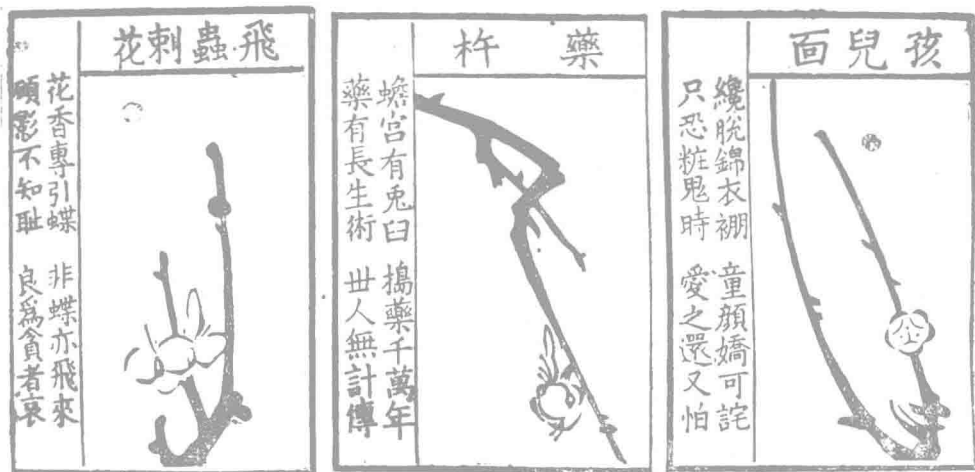 孩兒面
纔脫錦衣褓 童顏嬌可詫
只恐粧鬼時 愛之還又怕
藥杵
蟾宮有兎臼 搗藥千萬年
藥有長生術 世人無計傳
飛蟲刺花
花香專引蝶 非蝶亦飛來
顧影不知耻 良爲貪者哀